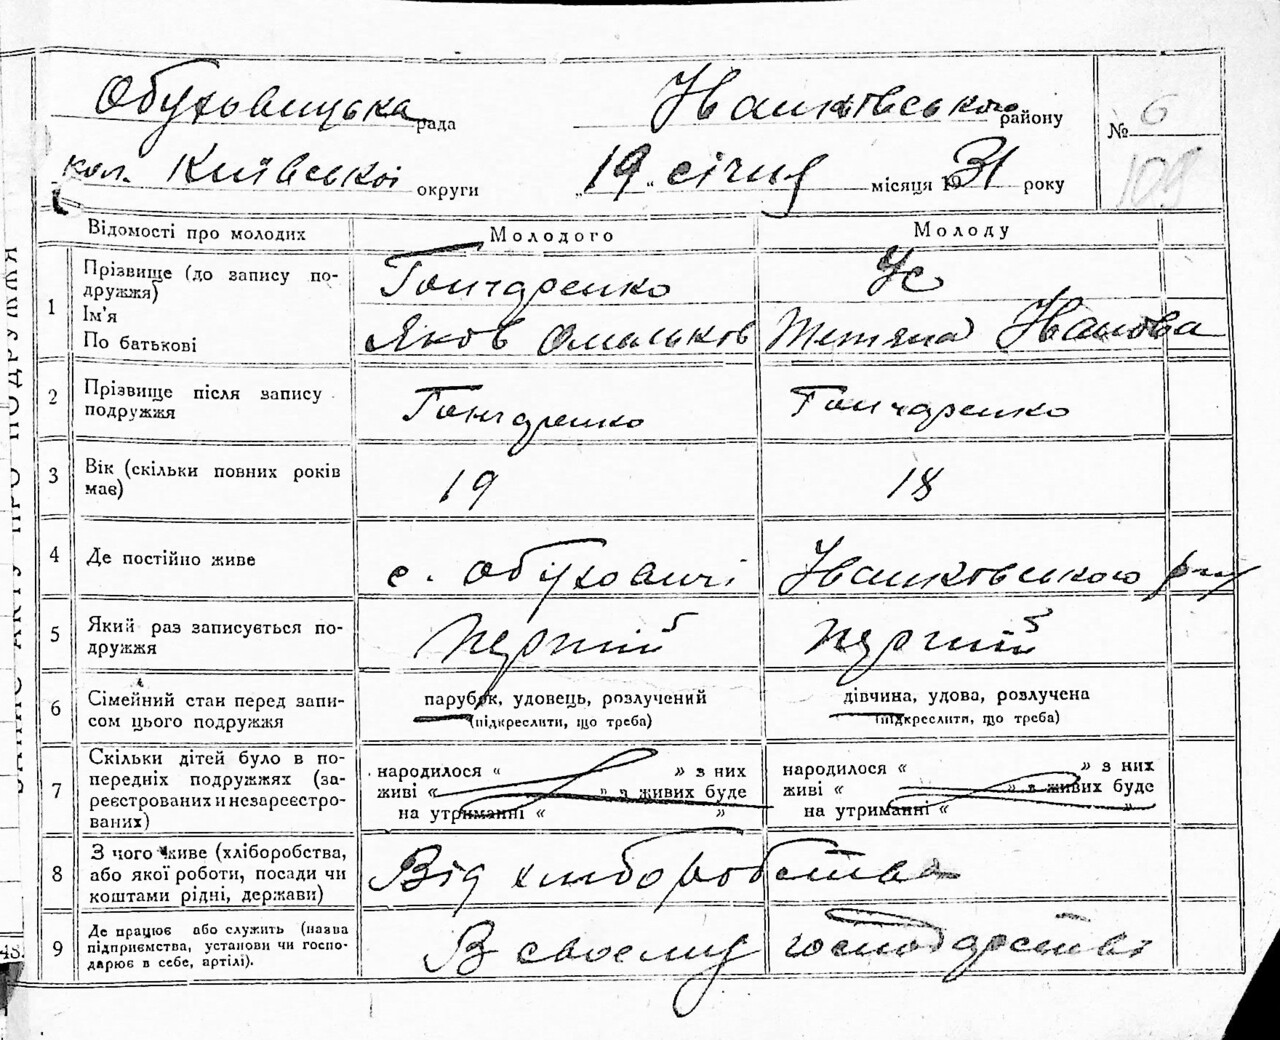 Обуховицька рада Іванківського району № 6
кол. Київської округи „19 „ січня місяця 1931 року 109
ЗАПИС АКТУ ПРО ПОДРУЖЖЯ
Відомості про молодих Молодого Молоду
1 Прізвище (до запису по-
дружжя) Гончаренко Ус
Ім'я
По батькові Яков Омельков Тетяна Іванова
2 Прізвище після запису
подружжя Гончаренко Гончаренко
3 Вік (скільки повних років
має) 19 18
4 Де постійно живе с. Обуховичі Іванковського р-ну
5 Який раз записується по-
дружжя Перший Перший
6 Сімейний стан перед запи-
сом цього подружжя
парубок, удовець, розлучений
(підкреслити, що треба)
дівчина, удова, розлучена
(підкреслити, що треба)
7 Скільки дітей було в по-
передніх подружжях (за-
реєстрованих и незареєстро-
ваних)
народилося “ ” з них
живі “ ” з живих буде
на утриманні “ ”
народилося “ ” з них
живі “ ” з живих буде
на утриманні “ ”
8 З чого живе (хліборобства,
або якої роботи, посади чи
коштами рідні, держави)
Від хліборобства
9 Де працює або служить (назва
підприємства, установи чи госпо-
дарює в себе, артілі).
В своєму господарстві
48.